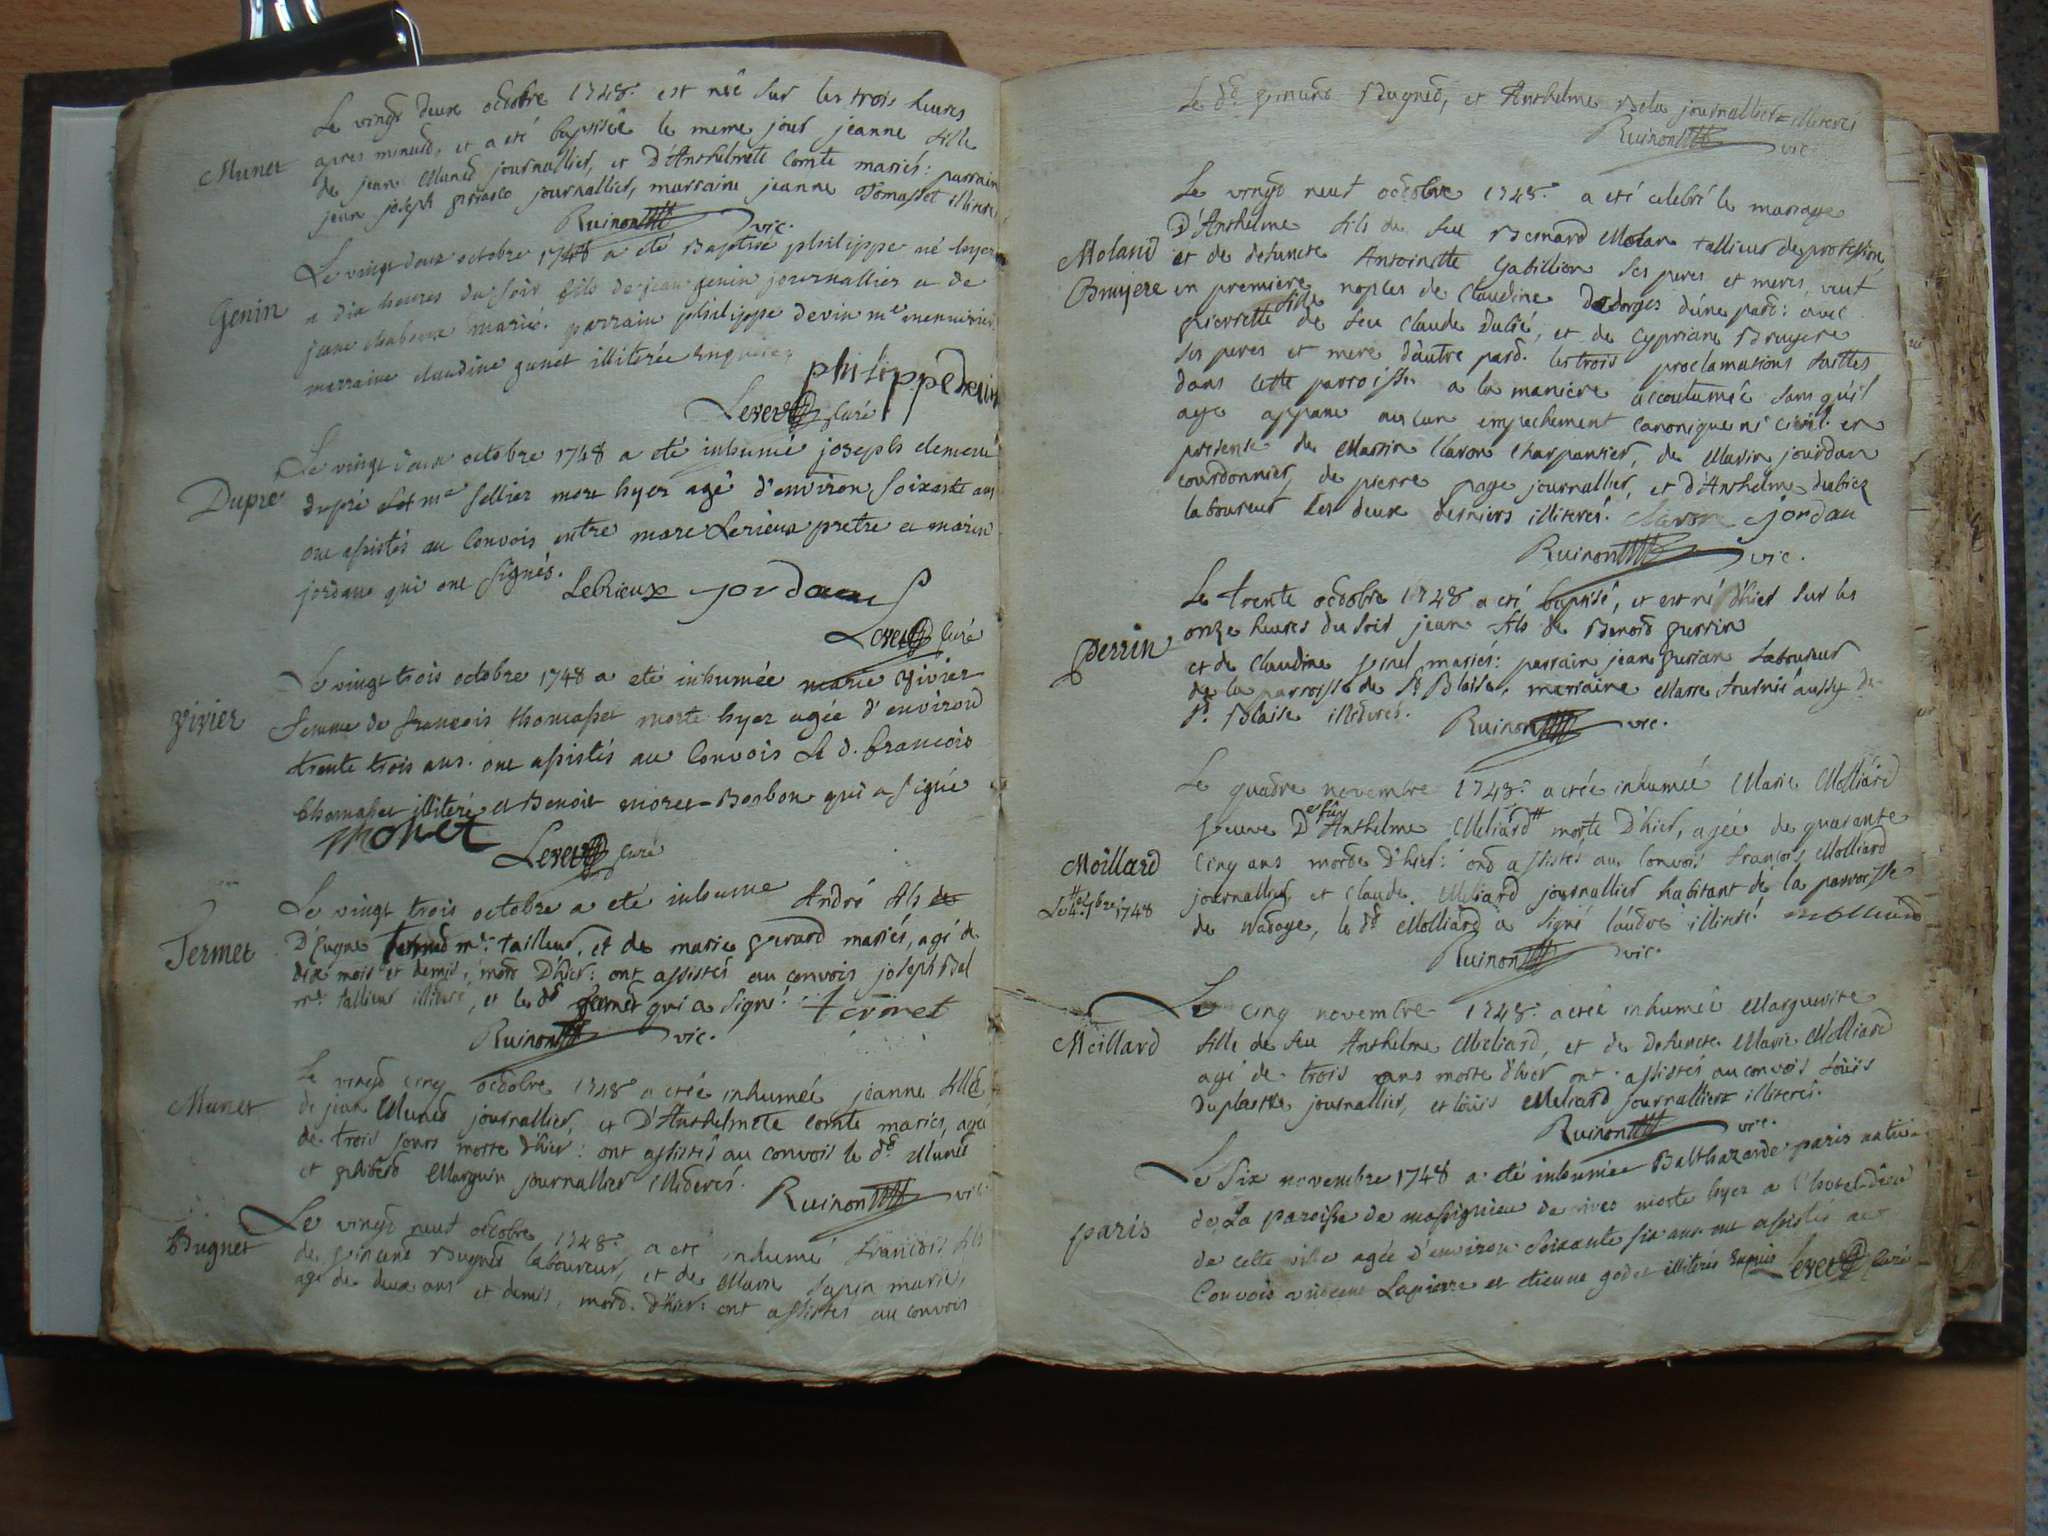 Le vingt deux octobre 1748. est née sur les trois heures
Munet
apres minuid, et a eté baptisée le meme jour jeanne fille
de jean Muned journallier, et D'Anthelmete Comte mariés: parrain
jean joseph journallier, marraine jeanne Tomasset illiteres
Ruinon vic.
Le vingt deux octobre 1748 a été Baptisé philippe né hyer
Genin
a dix heures du soir fils de jean genin journallier et de
jeanne chaboux mariés. parrain philippe devin me menuisier
marraine claudine gunet illiterée enquise
philippe devin
Leveret Curé
Le vingt deux octobre 1748 a eté inhumé joseph clement
Dupré
dupré me sellier mort hyer agé d'environ soixante ans
ont assistés au Convois entre marc Lerieux pretre et marin
jordan qui ont signés.
Lebrieux jordan
Leveret Curé
Le vingt trois octobre 1748 a eté inhumée marie vivier
Vivier
femme de françois thomasset morte hyer agée d'environ
trente trois ans. ont assistés au Convois Le d. francois
thomasset illiteré et Benoit moret-Bonbon qui a signé
monet
Leveret Curé
Le vingt trois octobre a eté inhumé André fils de
Fermet
D'Eugne fermed me. tailleur, et de marie gerard mariés, agé de
dix mois et demis, mord D'hier: ont assistés au convois joseph Bel
me. tallieur illiteré, et le dd fermet qui a signé.
Ruinon vic.
Le vingd cinq octobre 1748 a étée inhumée jeanne fille
Munet
de jean Muned journallier, et D'Anthelmete comte mariés, agée
de trois jours morte d'hier: ont assistés au convois le dd. Muned
et philiberd Marguin journallier illiderés.
Ruinon vic.
Le vingd neuf octobre 1748. a eté inhumé francois fils
Bugnet
de Bugned laboureur, et de Marie Sapin mariés,
agé de deux ans et demis, mord d'hier: ont assistés au convois
Le dd. Bugned, et Anthelme Bela journalliers illiterés
Ruinon vic.
Le vingd neuf octobre 1748. a eté celebré le mariage
D'Anthelme fils de feu Bernard Molan tallieur de profession
Moland
et de defuncte Antoinette Gabillion ses peres et meres, veuf
Bruyere
en premiere noples de Claudine Dedorges d'une pard: avec
pierrette fille de feu Claude Dulié, et de Cyprian Bruyere
ses peres et mere d'autre pard. les trois proclamations faittes
dans cette parroisse a la maniere accoutumée sans qu'il
aye apparu aucun empechement canonique ni civil. en
presence de Marin Claron Charpantier, de Marin jourdan
courdonnier, de pierre page journallier, et d'Anthelme dubiez
laboureur les deux derniers illiterés. Claron jordan
Ruinon vic.
Le trente octobre 1748 a eté baptisé, et est né d'hier sur les
onze heures du soir jean fils de Benoid perrin
Perrin
et de Claudine pinel mariés: parrain jean perian laboureur
de la parroisse de St Blaise, marraine Marie tournié aussy de
St. Blaise illiderés.
Ruinon vic.
Le quadre novembre 1748. a étée inhumée Marie Molliard
veuve D'Anthelme Meliard morte D'hier, agée de quarante
Moillard
Le 4e 9bre 1748
cinq ans morte D'hier: ond assistés au Convois françois Molliard
journallier, et Claude Meliard journallier habitant de la parroisse
de nadaye, le dd. Molliard a signé l'audre illiteré. molliard
Ruinon vic.
Le cinq novembre 1748. a étée inhumée Marguerite
Meillard
fille de feu Anthelme Meliard, et de Defuncte Marie Molliard
agé de trois ans morte d'hier ont assistés au convois Loüis
duplastre journallier, et loüis Meliard journallier illiterés.
Ruinon vic.
Le six novembre 1748 a eté inhumée Balthazarde paris native
paris
de La paroisse de massignieu de rives morte hyer a l'hotel-dieu
de cette ville agée d'environ soixante six ans ont assistés au
Convois vincent Lapierre et etienne godet illiterés enquis Leveret Curé